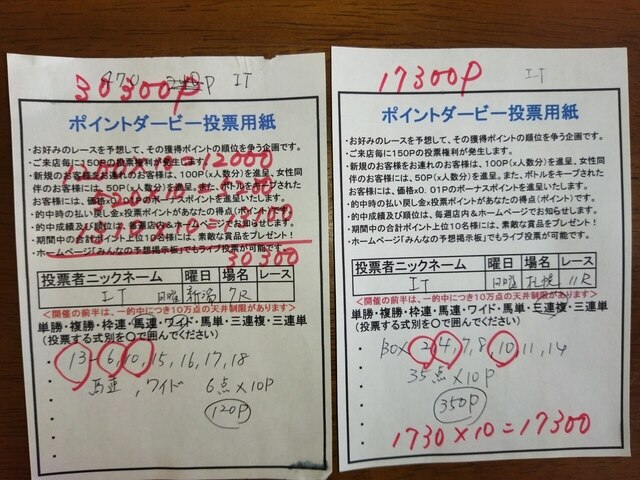 470 P IT
30300P
ポイントダービー投票用紙
・お好みのレースを予想して、その獲得ポイントの順位を争う企画です。
・ご来店毎に150Pの投票権利が発生
・新規のお客様をお連れのお客様は、100P(x人数分)を進呈、女性同
伴のお客様には、50P(x人数分)を進呈、また、ボトルをキープされた
お客様には、価格x0.01Pのボーナスポイントを進呈いたします。
・的中時の払い戻し金x投票ポイントがあなたの得点(ポイント)です。
・的中成績及び順位は、毎週店内&ホームページでお知らせします。
・期間中の合計ポイント上位10名様には、素敵な賞品をプレゼント!
・ホームページ「みんなの予想掲示板」でもライブ投票が可能です。
=12000
30300
投票者ニックネーム 曜日 場名 レース
IT 日曜 新潟 7R
<開催の前半は、一的中につき10万点の天井制限があります>
単勝・複勝・枠連・馬連・ワイド・馬単・三連複・三連単
(投票する式別を○で囲んでください)
13-6,10,15,16,17,18
馬連,ワイド 6点×10P
120P
17300P IT
ポイントダービー投票用紙
・お好みのレースを予想して、その獲得ポイントの順位を争う企画です。
・ご来店毎に150Pの投票権利が発生します。
・新規のお客様をお連れのお客様は、100P(x人数分)を進呈、女性同
伴のお客様には、50P(x人数分)を進呈、また、ボトルをキープされた
お客様には、価格x0.01Pのボーナスポイントを進呈いたします。
・的中時の払い戻し金x投票ポイントがあなたの得点(ポイント)です。
・的中成績及び順位は、毎週店内&ホームページでお知らせします。
・期間中の合計ポイント上位10名様には、素敵な賞品をプレゼント!
・ホームページ「みんなの予想掲示板」でもライブ投票が可能です。
投票者ニックネーム 曜日 場名 レース
IT 日曜 札幌 11R
<開催の前半は、一的中につき10万点の天井制限があります>
単勝・複勝・枠連・馬連・ワイド・馬単・三連複・三連単
(投票する式別を○で囲んでください)
BOX 2,4,7,8,10,11,14
35点×10P
350P
1730×10=17300